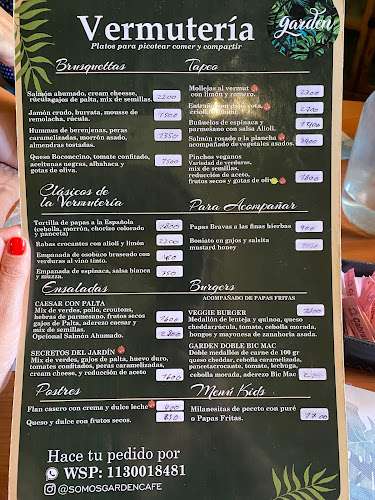 Vermutería
Platos para picotear comer y compartir
garden
Brusquettas
Salmón ahumado, cream cheesse,
rúcula gajos de palta, mix de semillas.
2200
Jamón crudo, burrata, mousse de
remolacha, rúcula.
1500
Hummus de berenjenas, peras
caramelizadas, morrón asado,
almendras tostadas.
1350
Queso Boconccino, tomate confitado,
aceitunas negras, albahaca y
gotas de oliva.
1500
Clásicos de
la Vermutería
Tortilla de papas a la Española
(cebolla, morrón, chorizo colorado
y panceta)
Rabas crocantes con alioli y limón
2200
Empanada de osobuco braseado con
verduras al vino tinto.
Empanada de espinaca, salsa blanca
y muzza.
350
Ensaladas
CAESAR CON PALTA
Mix de verdes, pollo, croutons,
hebras de parmesano, frutos secos
gajos de Palta, aderezo caesar y
mix de semillas.
1600
Opcional Salmón Ahumado.
SECRETOS DEL JARDÍN
Mix de verdes, gajos de palta, huevo duro,
tomates confitados, peras caramelizadas,
cream cheese, y reducción de aceto
1600
Postres
Flan casero con crema y dulce leche
Queso y dulce con frutos secos.
Tapeo
Mollejas al vermut
con limón y romero.
criolla
Buñuelos de espinaca y
parmesano con salsa Alioli.
Salmón rosado a la plancha
acompañado de vegetales asados.
Pinchos veganos
Variedad de verduras,
mix de semillas.
reducción de aceto,
frutos secos y gotas de oliva
Para Acompañar
Papas Bravas a las finas hierbas
900
Boniato en gajos y salsita
mustard honey
Burgers
ACOMPAÑADO DE PAPAS FRITAS
VEGGIE BURGER
Medallón de lenteja y quinoa, queso
cheddar, rúcula, tomate, cebolla morada,
hongos y mayonesa de zanahoria asada.
GARDEN DOBLE BIC MAC
Doble medallón de carne de 100 gr
queso cheddar, cebolla caramelizada,
panceta crocante, tomate, lechuga,
cebolla morada, aderezo Bic Mac
Menú Kids
Milanesitas de peceto con puré
o Papas Fritas.
Hace tu pedido por
WSP: 1130018481
@SOMOSGARDENCAFE